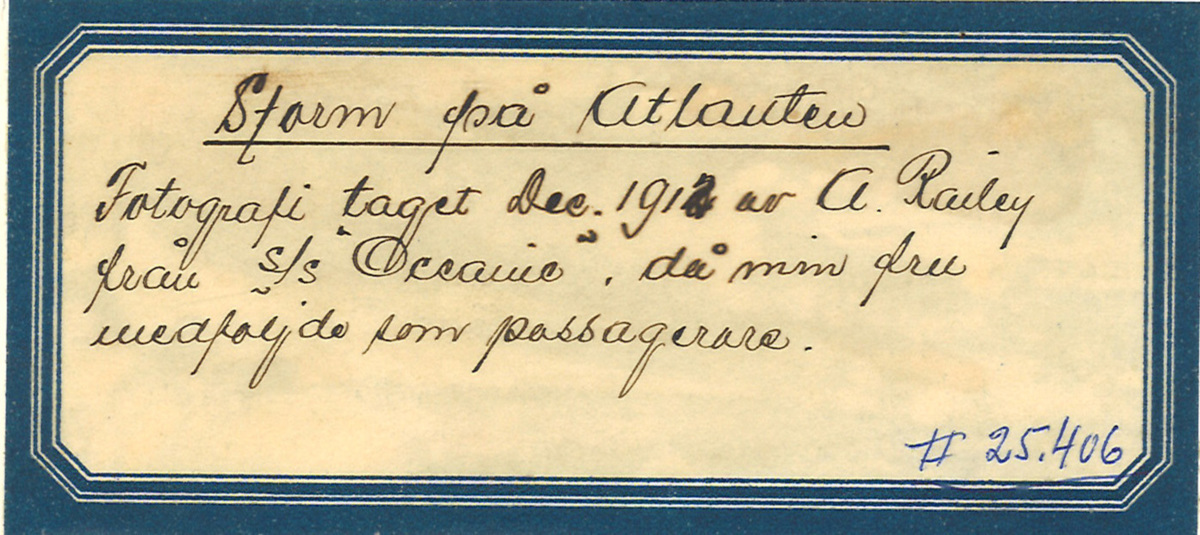 Storm på Atlanten
Fotografi taget Dec. 1912 av A. Railey
från s/s "Oceanic", då min fru
medföljde som passagerare.
# 25.406